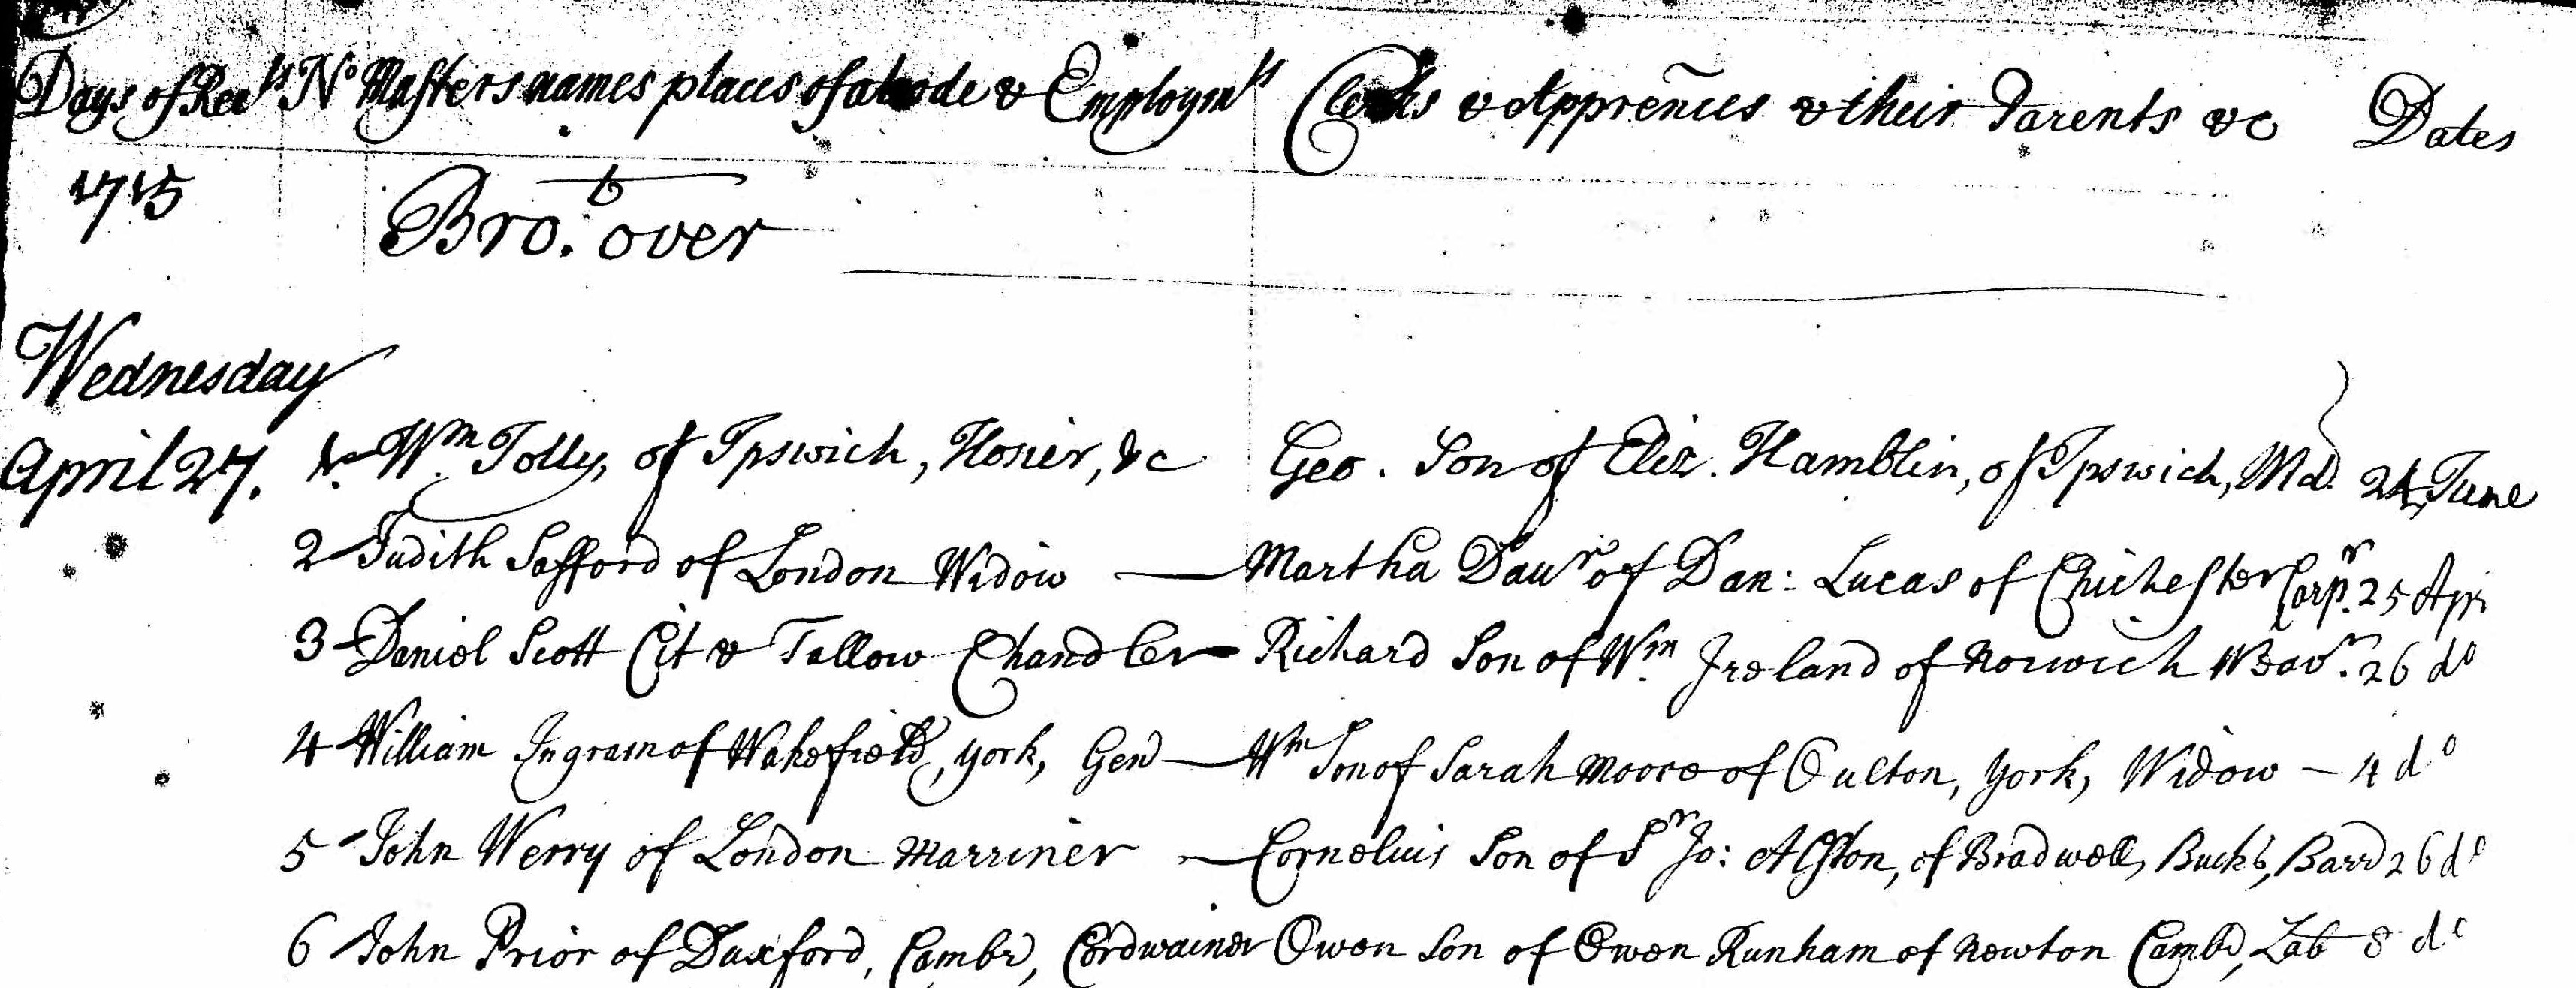 Days of Rects No Masters names places of abode & Employmts Clerks & Apprences & their Parents &c Dates
1715 Brot. over
Wednesday
April 27. 1. Wm Jolly, of Ipswich, Hosier, &c Geo. Son of Eliz. Hamblin, of Ipswich, Wid 24 June
2 Judith Safford of London Widow — Martha Daur of Dan: Lucas of Chichester Carpr. 25 Apr
3 Daniel Scott Cit & Tallow Chandler - Richard Son of Wm Ireland of Norwich Weavr. 26 do
4 William Ingram of Wakefield, York, Gen — Wm Son of Sarah Moore of Oulton, York, Widow — 4 do
5 John Werry of London Marriner — Cornelius Son of Sr Jo: Alston, of Bradwell, Bucks, Barr 26 do
6 John Prior of Duxford, Cambr, Cordwainer Owen Son of Owen Runham of Newton Camb, Lab 8 do